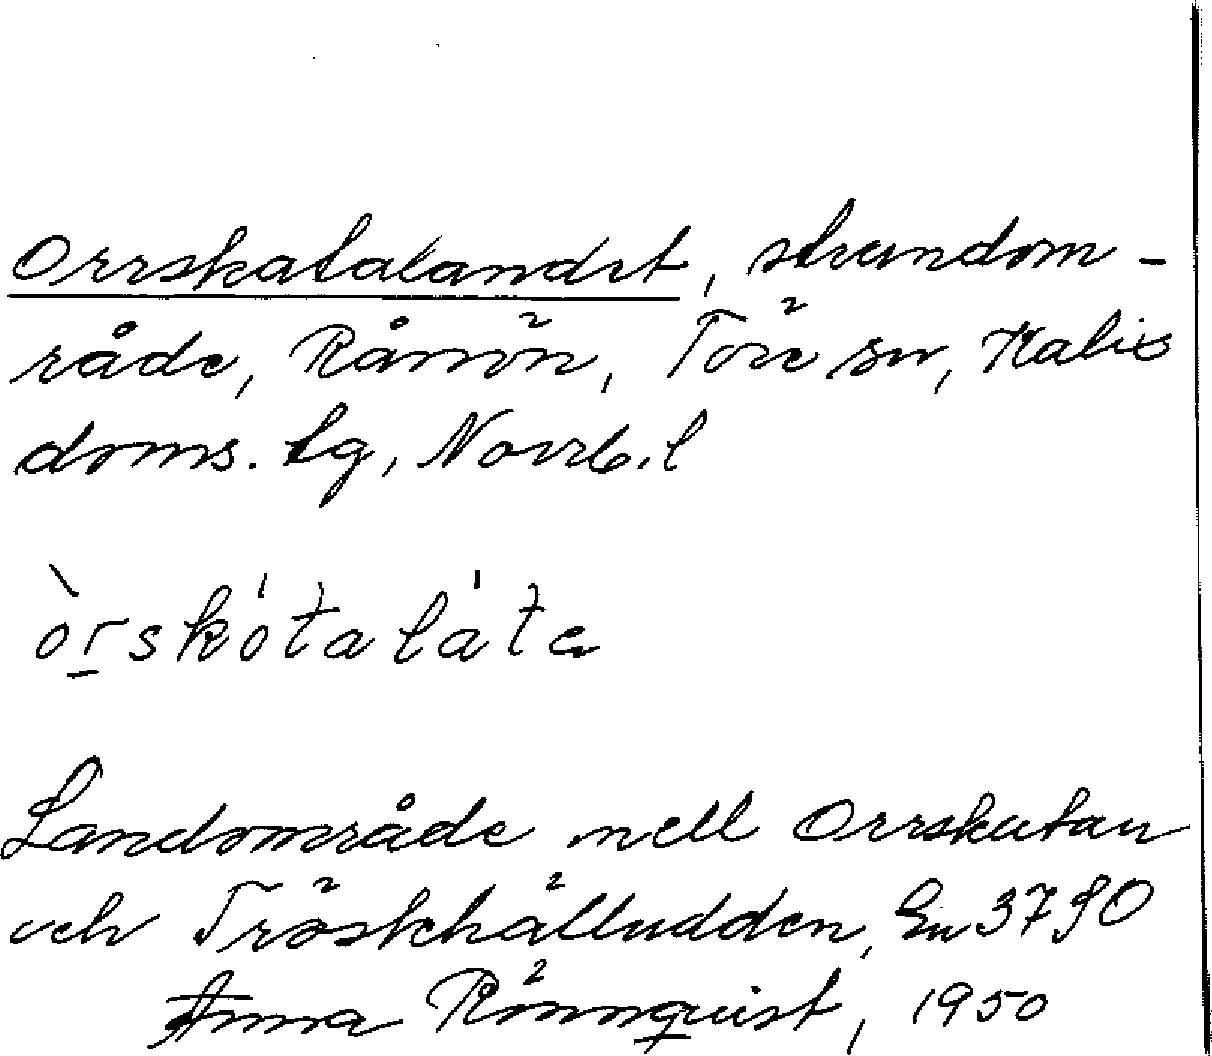 Orrskatalandet, strandom-
råde, Rånön, Töre sn, Kalix
doms. lg, Norrb. l
òrskótaláta
Landområde mell Orrskatan
och Tröskhälludden, En 37 SO
Anna Rönnquist, 1950